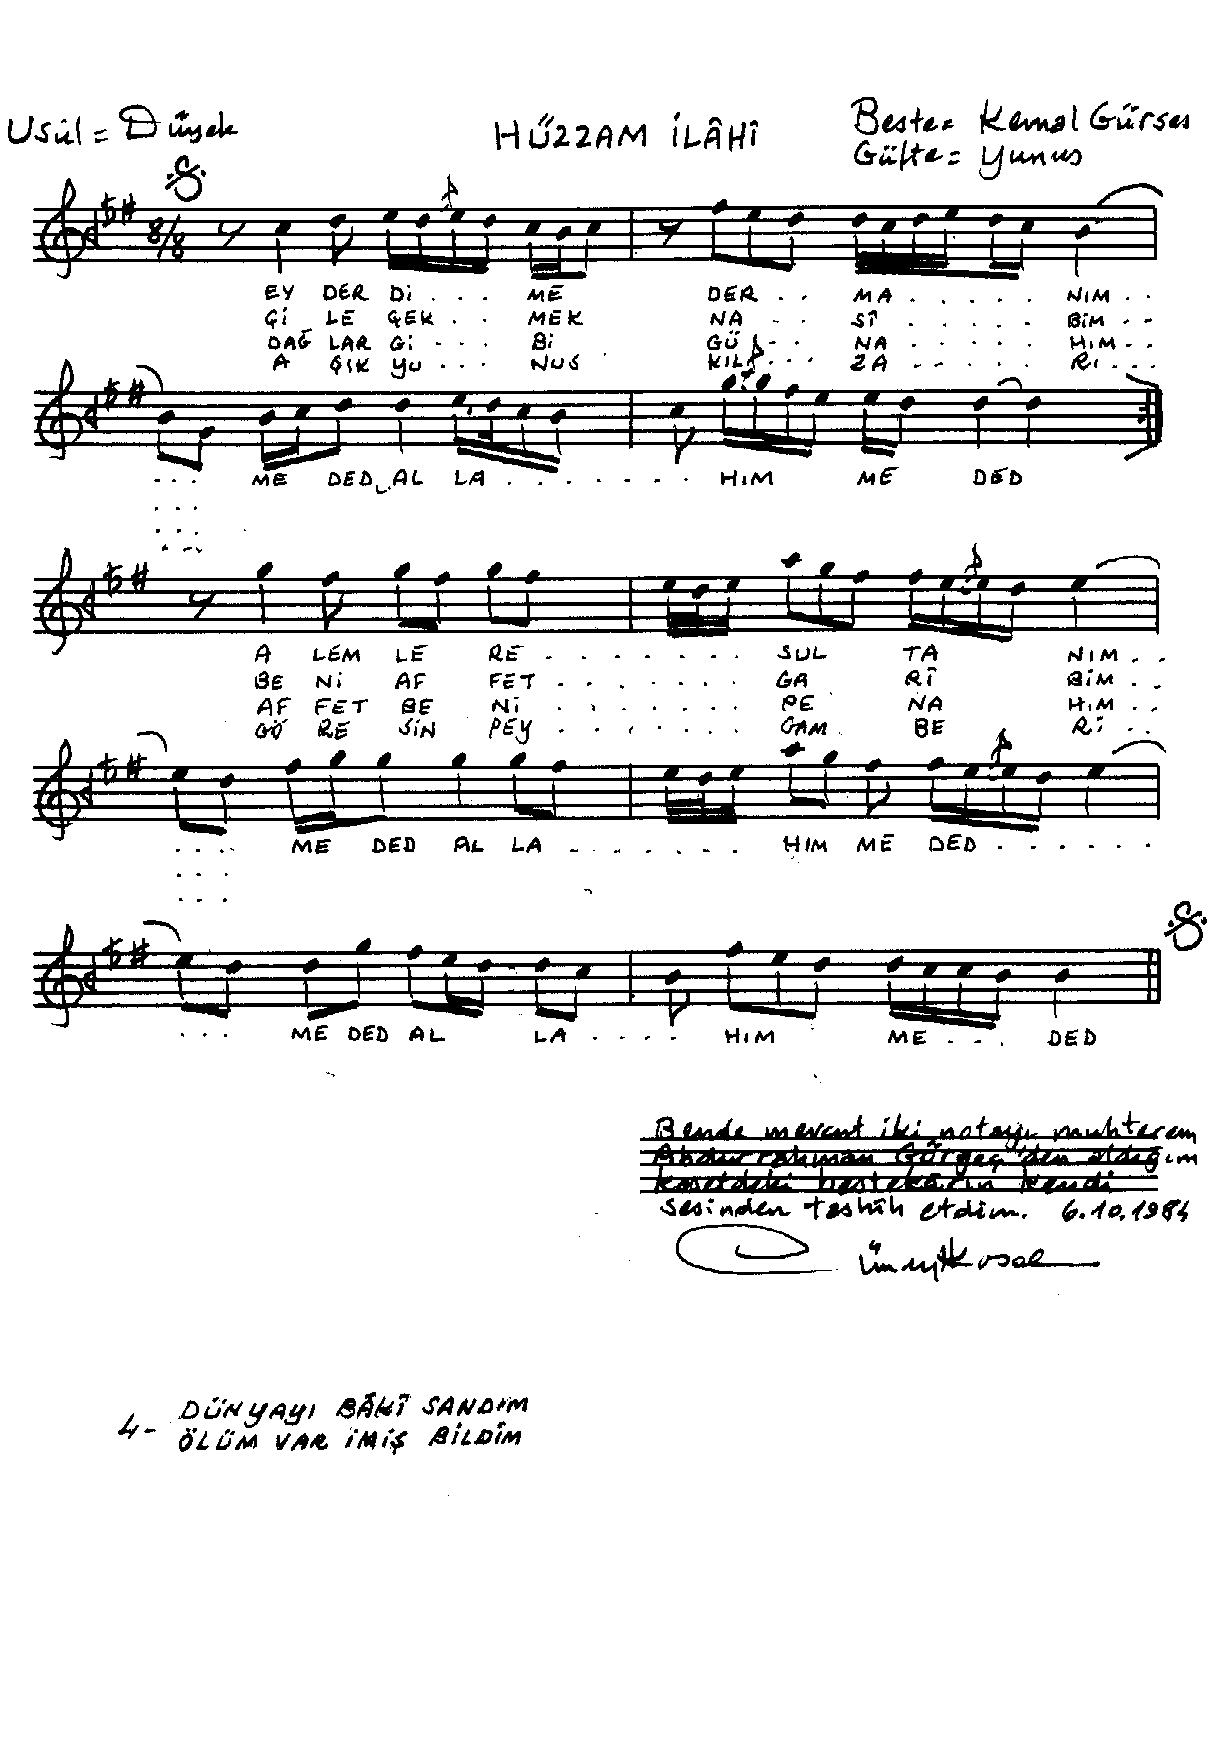 Usûl = Düyek
HÜZZAM İLÂHÎ
Beste = Kemal Gürses
Güfte = Yunus
8/8
EY DER Dİ . . . ME DER . . MA . . . . . NIM . .
ÇİLE ÇEK . . MEK NA . . SÎ . . . . . BİM . .
DAĞLAR Gİ . . . Bİ GÜ . . . NA . . . . . HIM . .
A ŞIK YU . . . NUS KIL . . . ZA . . . . . RI . . .
. . . ME DED AL LA . . . . . . . HIM ME DED
. . .
. . .
. . .
A LEM LE RE . . . . . . . SUL TA NIM . .
BE Nİ AF FET . . . . . . . GA RÎ BİM . .
AF FET BE Nİ . . . . . . . PE NA HIM . .
GÖ RE SİN PEY . . . . . . . GAM BE Rİ . .
. . . ME DED AL LA . . . . . . HIM ME DED . . . . . .
. . .
. . .
. . . ME DED AL LA . . . . HIM ME . . . DED
Bende mevcut iki notayı muhterem
Abdurrahman Gürgeç'den aldığım
kasetdeki bestekârın kendi
sesinden tashih etdim. 6.10.1984
4- DÜNYAYI BÂKÎ SANDIM
ÖLÜM VAR İMİŞ BİLDİM